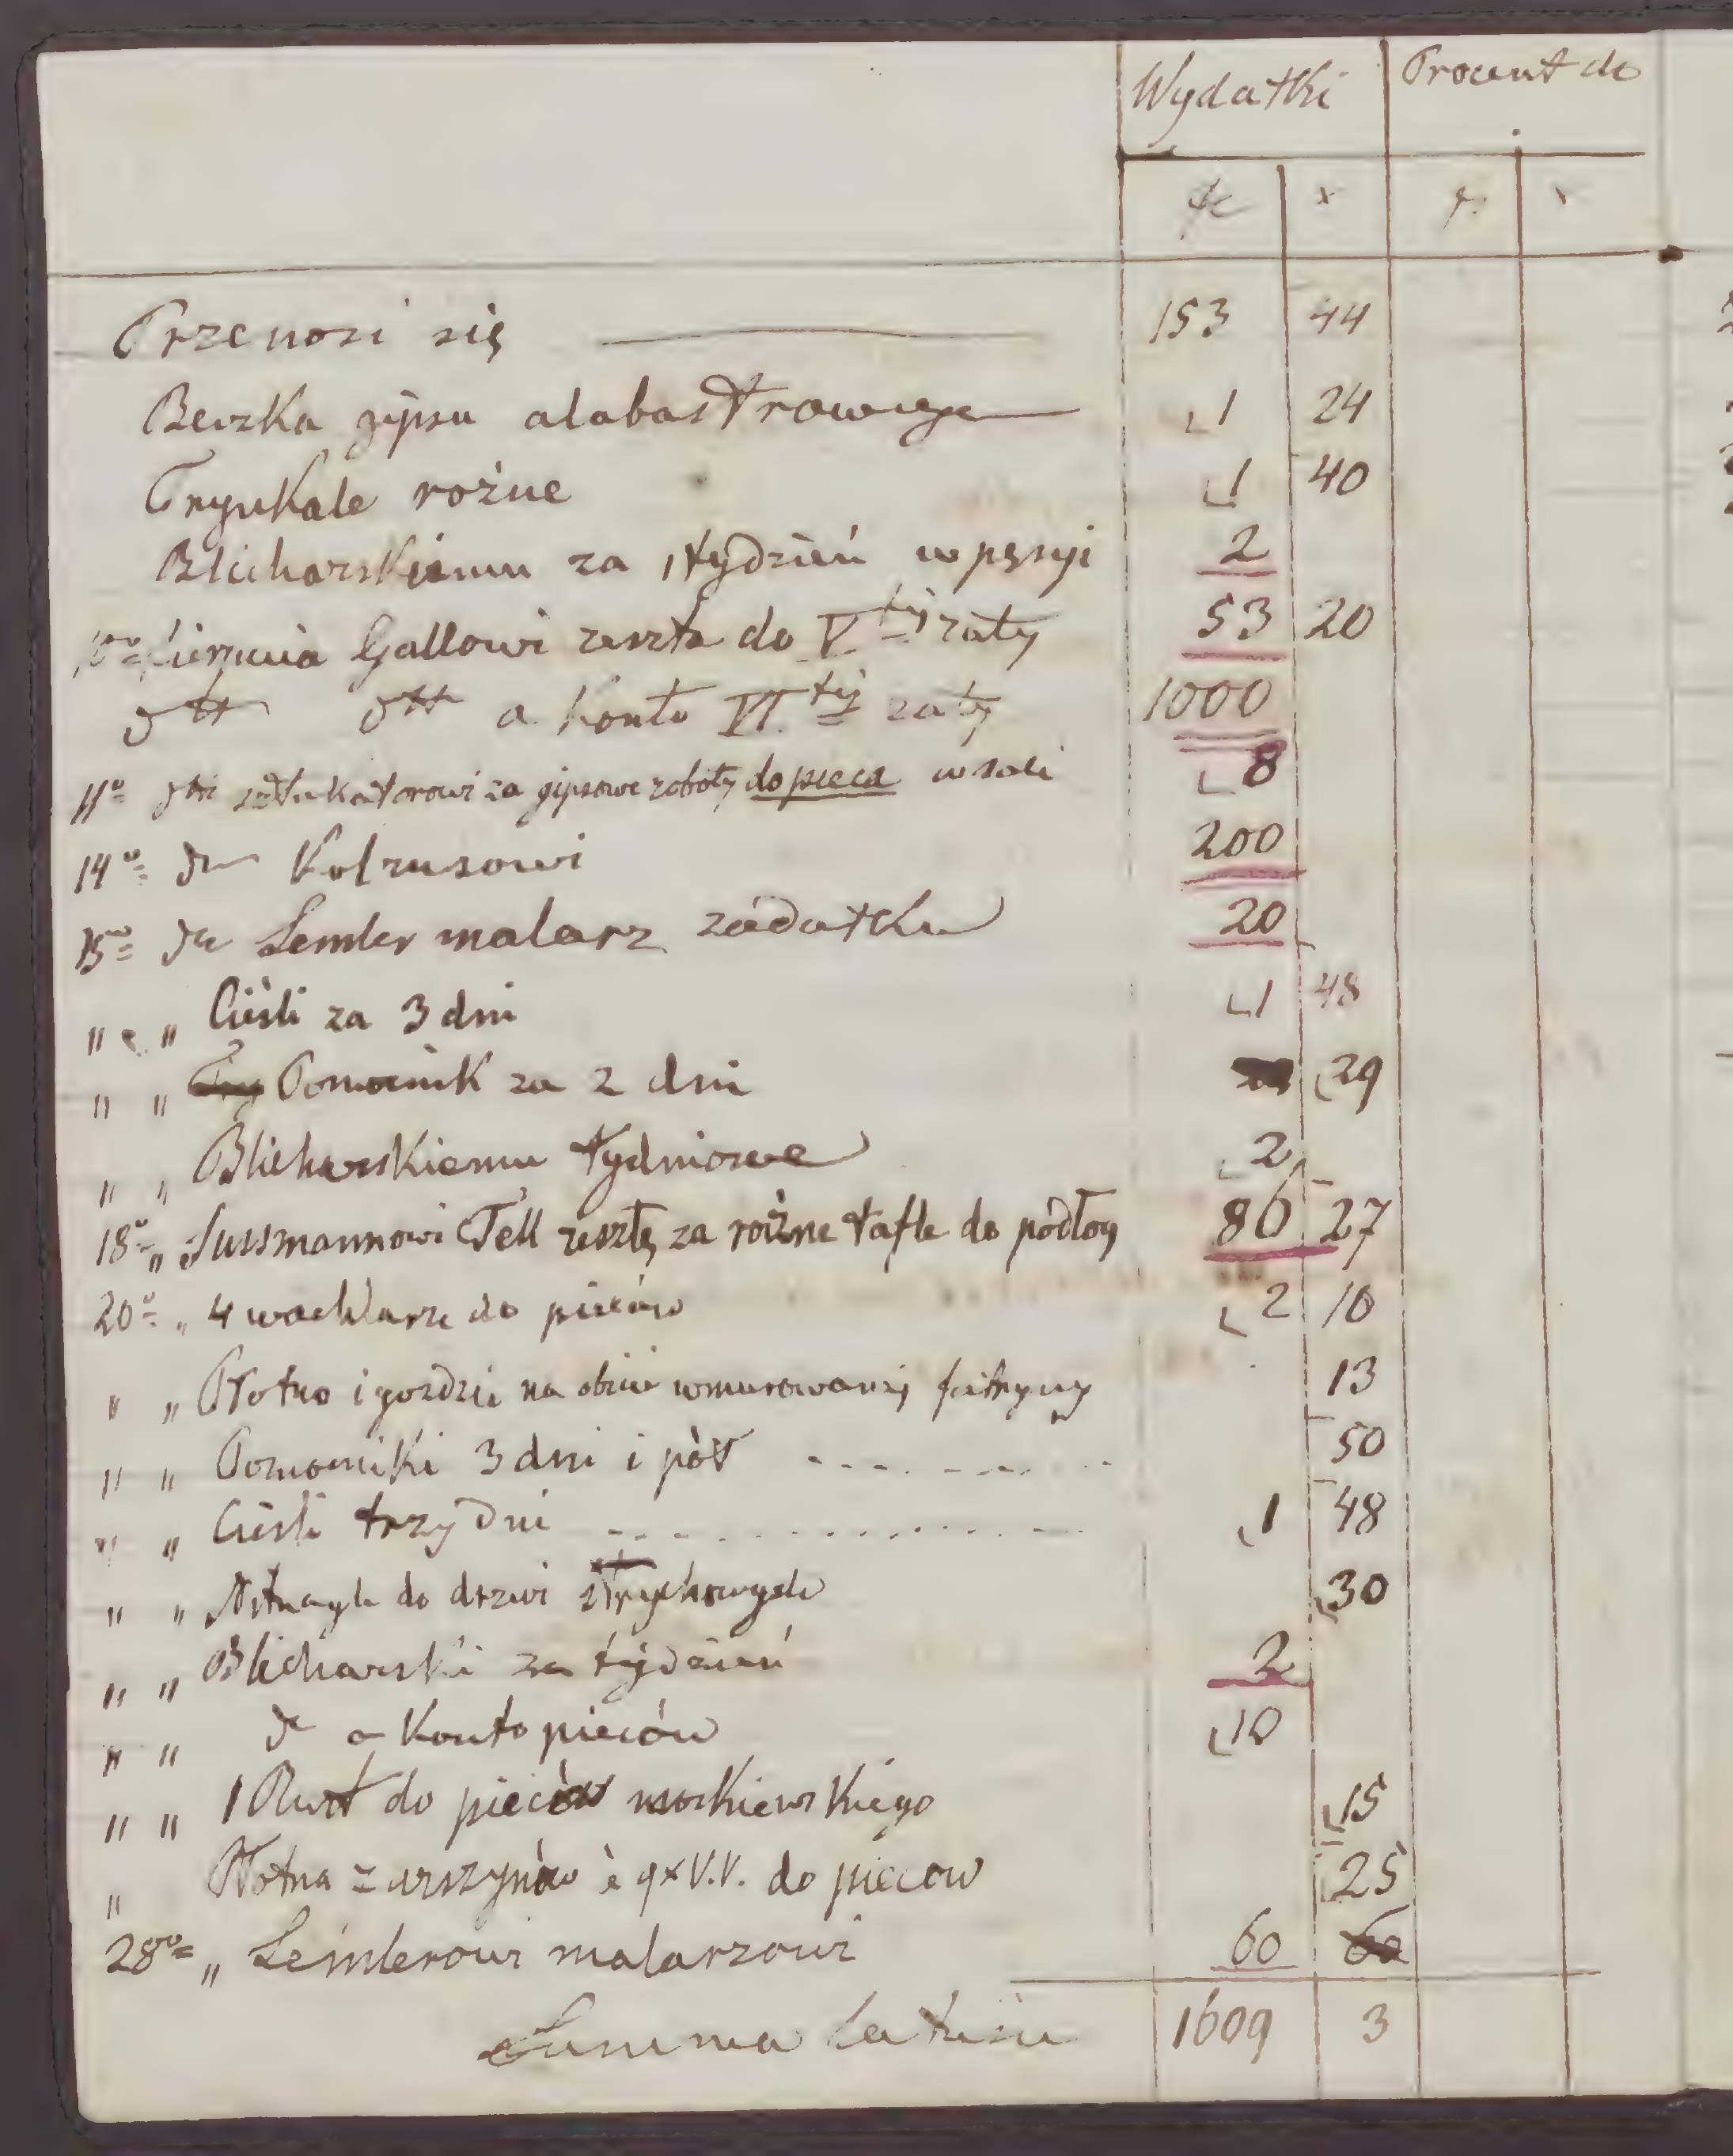 Wydatki Procent do
fr x fr x
Przenosi się 153 44
Beczka gipsu alabastrowego 1 24
Trynkale rożne 1 40
Blicharskiemu za 1 tydzień w pęsyi 2
10º Czerwca Gallowi reszta do V tej raty 53 20
dtto dtto a Konto VI tej raty 1000
11º dtto sztukatorowi za gipsowe roboty do pieca w sali 8
14º dto 200
15º dto Lemler malarz zadatku 20
" " Cieśli za 3 dni 1 48
" " Pomocnik za 2 dni 29
" " Blicharskiemu tydniowe 2
18º " Sussmannowi Tell resztę za rożne tafle do podłog 86 27
20º " 4 wachlarze do pieców 2 10
" " Płotno i gozdzie na obicie wmurowanej futryny 13
" " Pomocniki 3 dni i pół 50
" " Cieśli trzy dni 1 48
" " do drzwi strychowych 30
" " Blicharski za tydzień 2
" " dto a Konto pieców 10
" " 1 do pieców 15
" Płotna 2 arszynów è 9x V.V. do pieców 25
28º " Lemlerowi malarzowi 60
Summa Latusu 1609 3